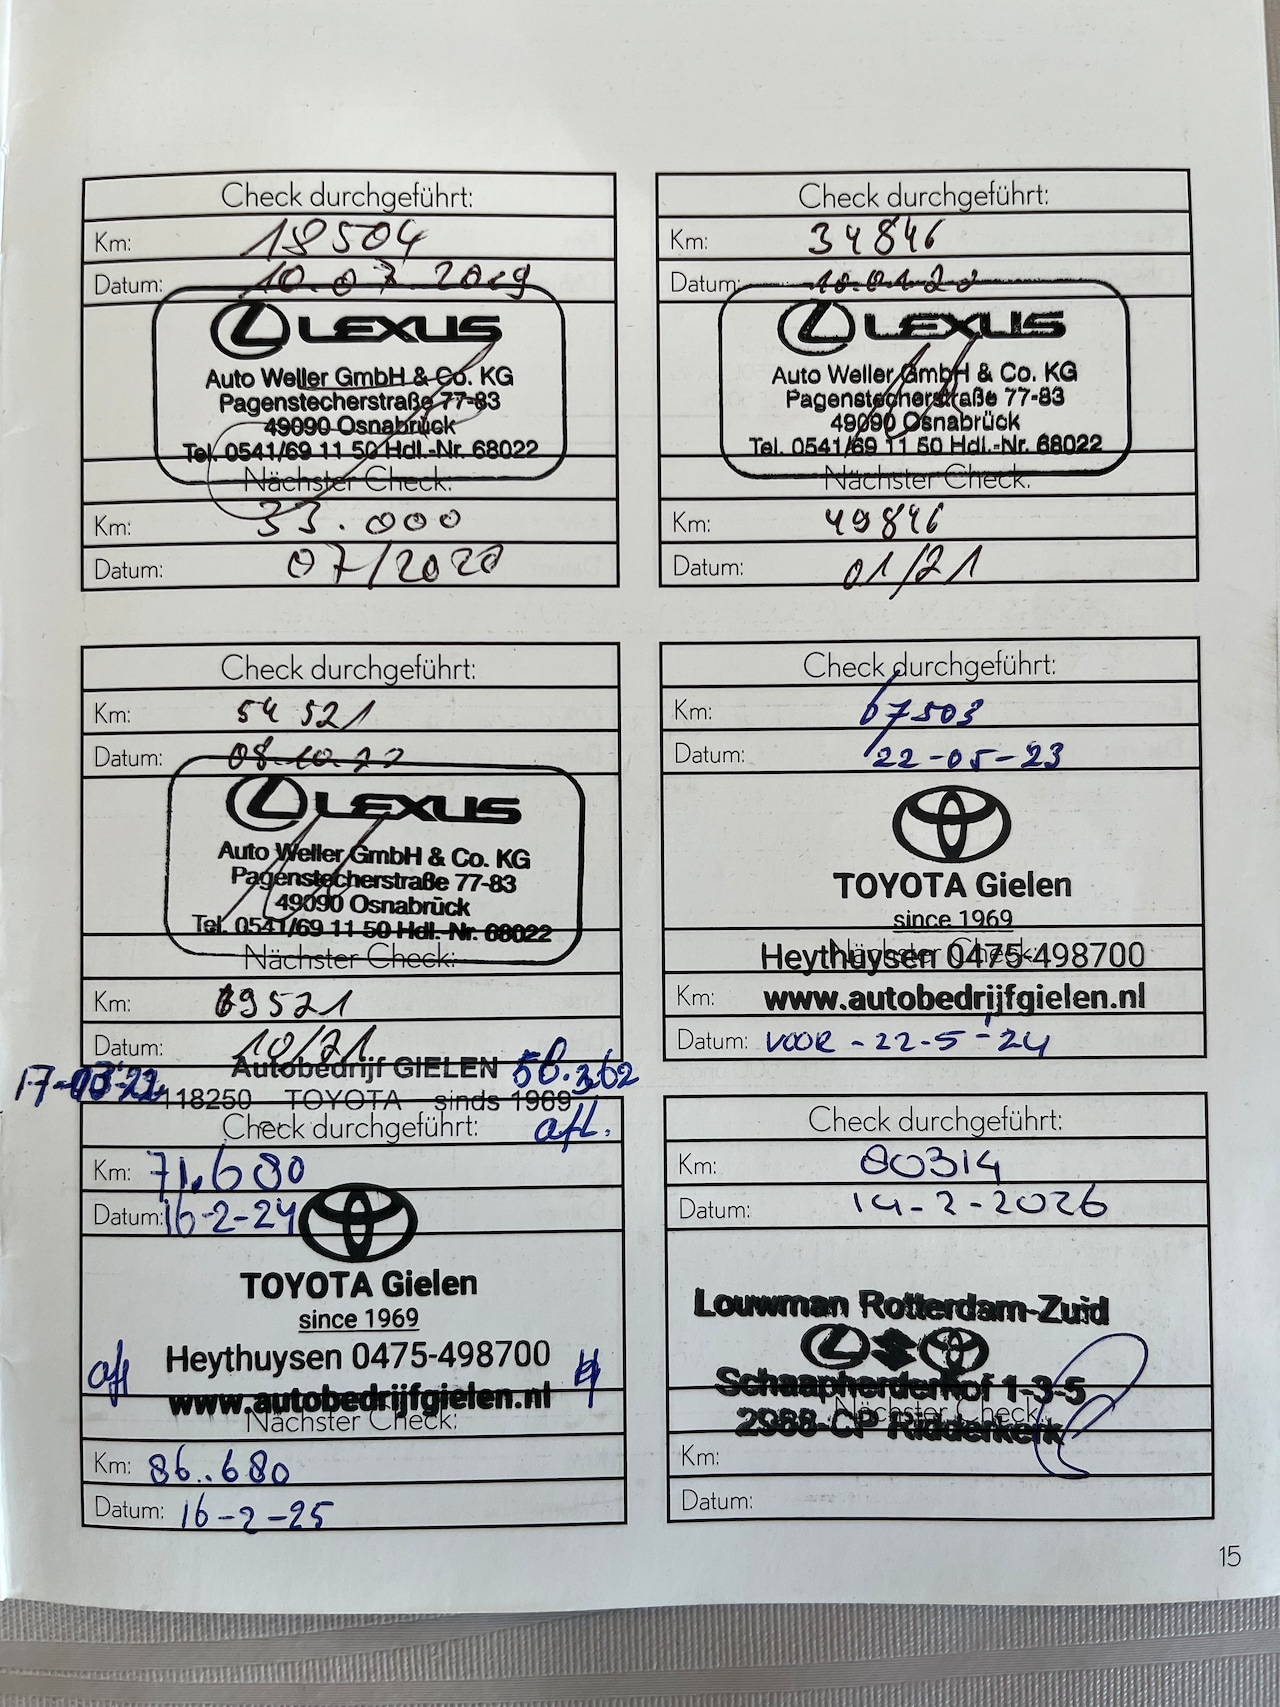 Check durchgeführt:
Km: 18504
Datum: 10.07.2019
LEXUS
Auto Weller GmbH & Co. KG
Pagenstecherstraße 77-83
49090 Osnabrück
Tel. 0541/69 11 50 Hdl.-Nr. 68022
Nächster Check:
Km: 33.000
Datum: 07/2020
Check durchgeführt:
Km: 34846
Datum:
LEXUS
Auto Weller GmbH & Co. KG
Pagenstecherstraße 77-83
49090 Osnabrück
Tel. 0541/69 11 50 Hdl.-Nr. 68022
Nächster Check:
Km: 49846
Datum: 01/21
Check durchgeführt:
Km: 54 521
Datum:
LEXUS
Auto Weller GmbH & Co. KG
Pagenstecherstraße 77-83
49090 Osnabrück
Tel. 0541/69 11 50 Hdl.-Nr. 68022
Nächster Check:
Km: 69521
Datum: 10/21
Autobedrijf GIELEN
118250 TOYOTA sinds 1969
Check durchgeführt:
Km: 67503
Datum: 22-05-23
TOYOTA Gielen
since 1969
Heythuysen 0475-498700
Nächster Check:
Km: www.autobedrijfgielen.nl
Datum: VOOR - 22-5-'24
Check durchgeführt: afl.
Km: 71.680
Datum: 16-2-24
TOYOTA Gielen
since 1969
Heythuysen 0475-498700
afl
www.autobedrijfgielen.nl
Nächster Check:
Km: 86.680
Datum: 16-2-25
Check durchgeführt:
Km: 80314
Datum: 14-2-2026
Louwman Rotterdam-Zuid
Schaapherderhof 1-3-5
Nächster Check:
2988 CP Ridderkerk
Km:
Datum:
15